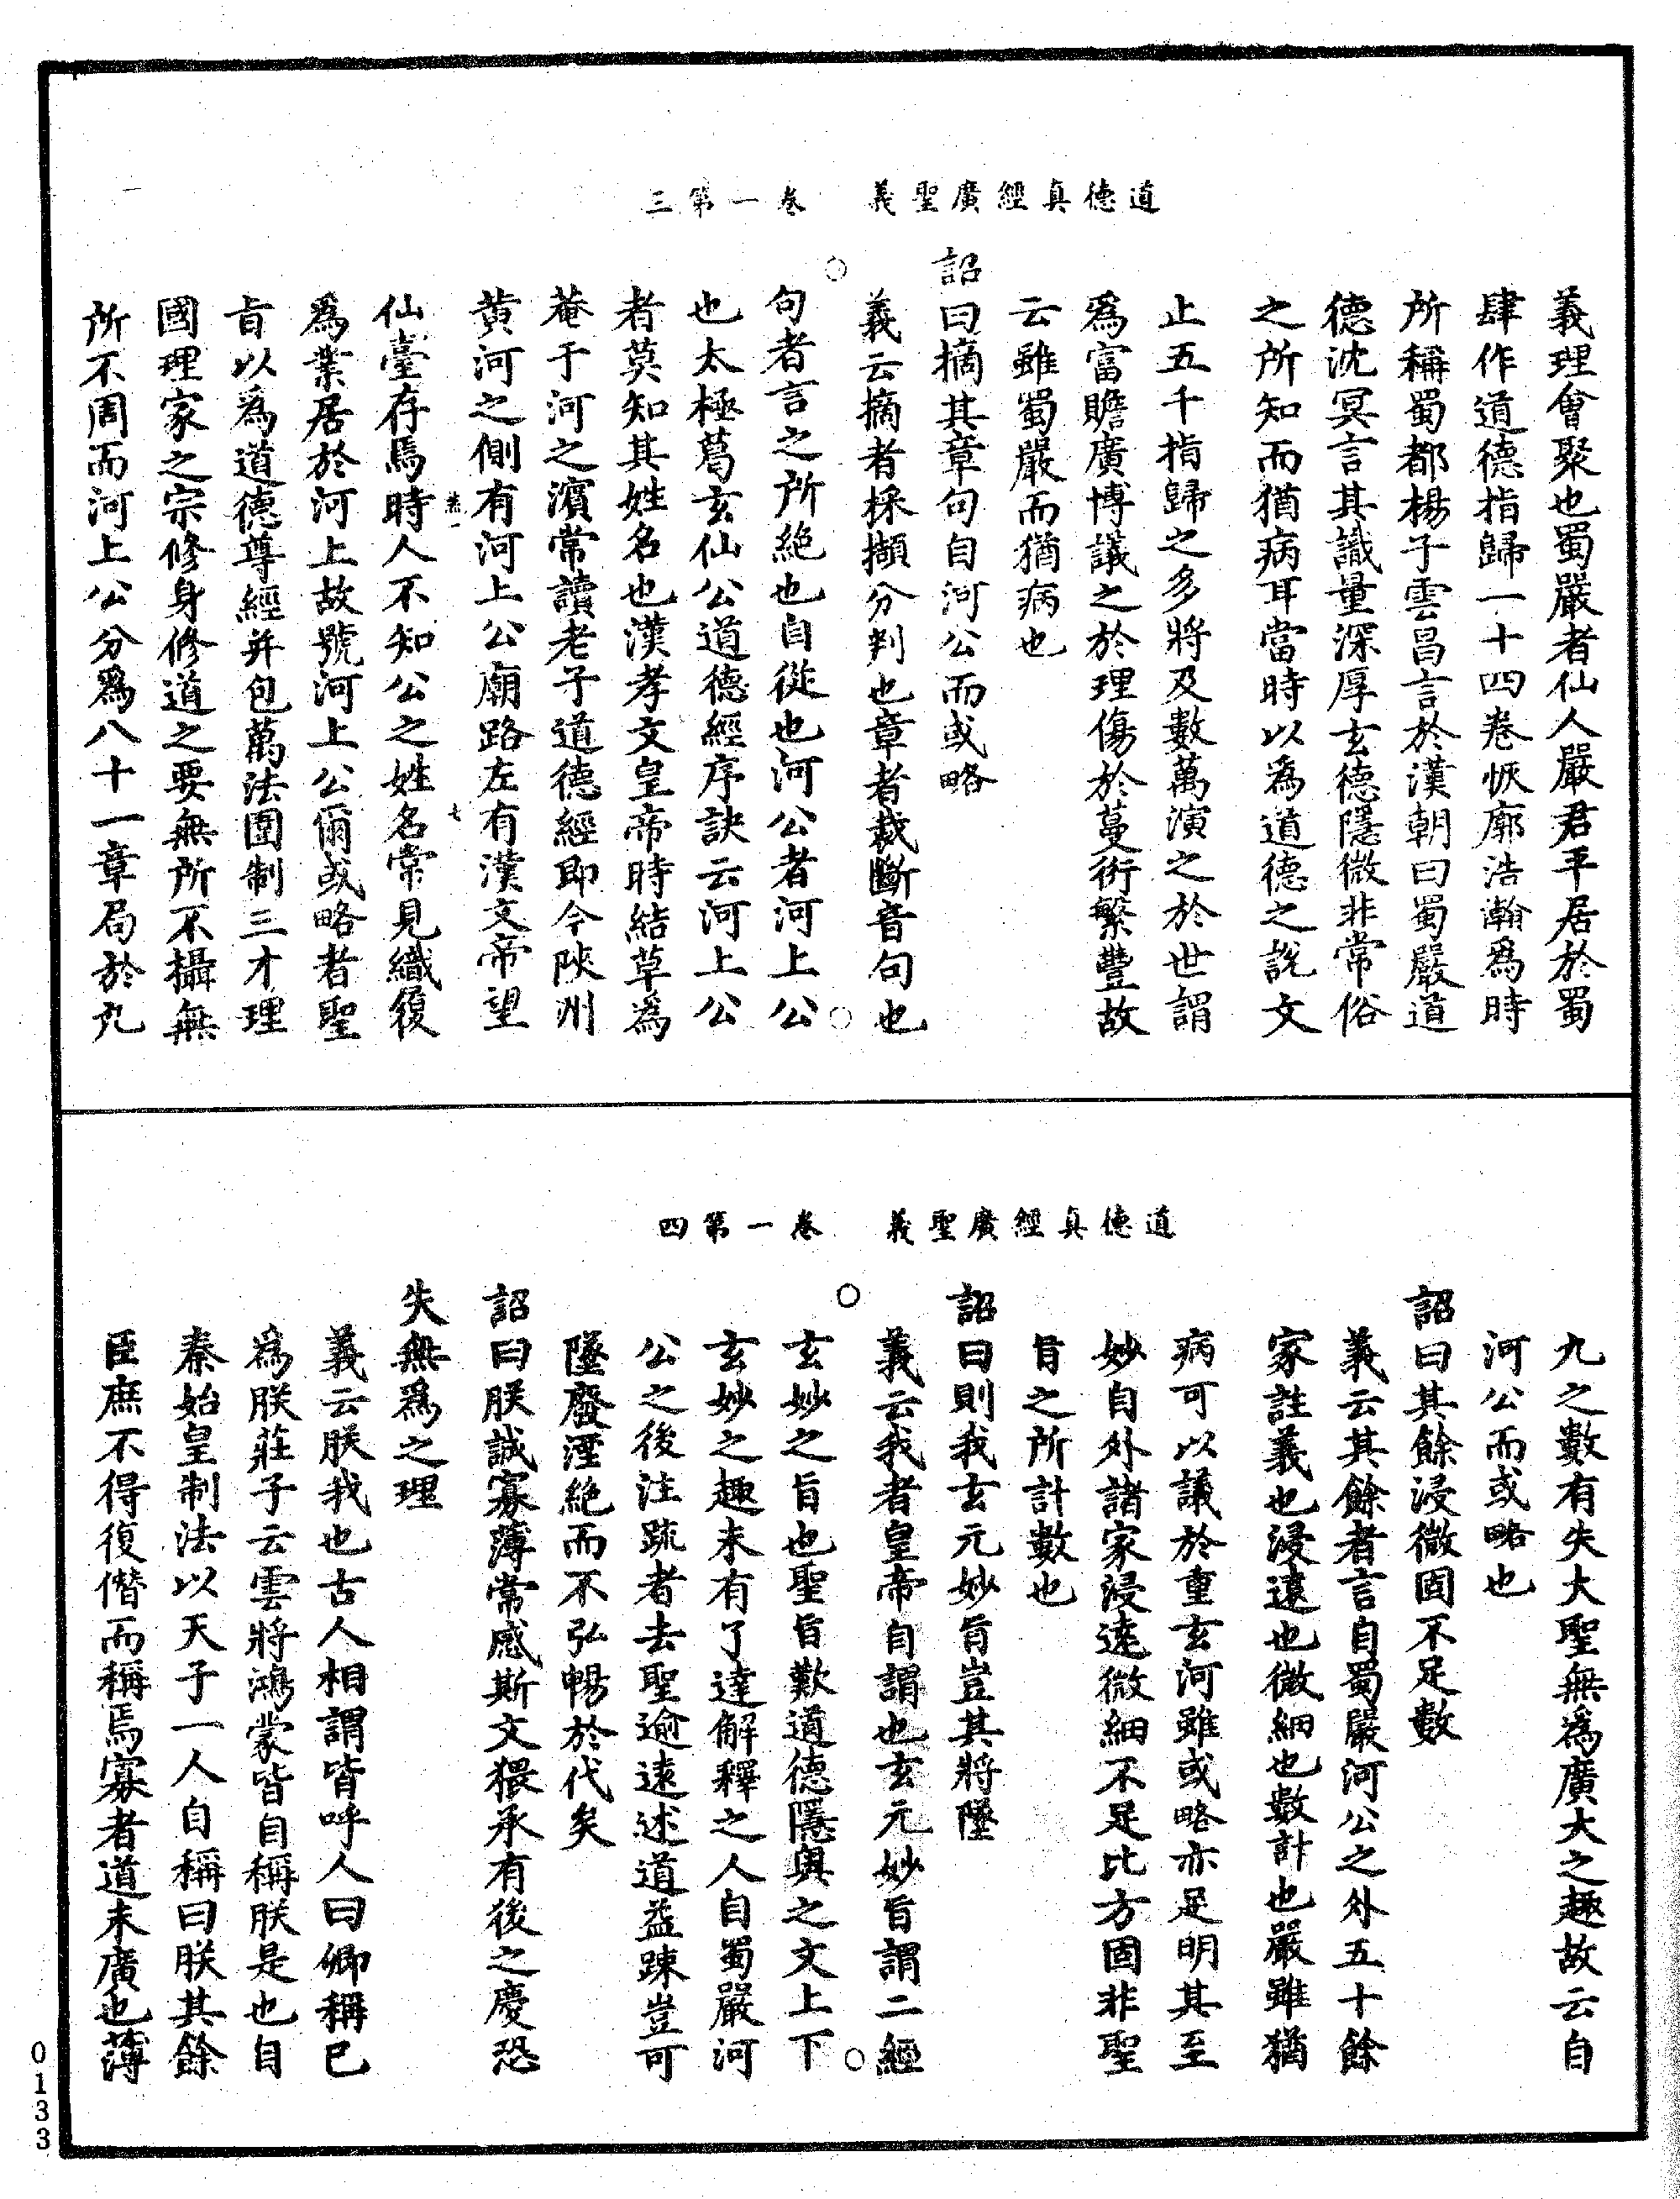 道德真經廣聖義　卷一第三
義理會聚也蜀嚴者仙人嚴君平居於蜀
肆作道德指歸一十四卷恢廓浩瀚爲時
所稱蜀都楊子雲昌言於漢朝曰蜀嚴道
德沈冥言其識量深厚玄德隱微非常俗
之所知而猶病耳當時以爲道德之說文
止五千指歸之多將及數萬演之於世謂
爲富贍廣博議之於理傷於蔓衍繁豐故
云雖蜀嚴而猶病也
詔曰摘其章句自河公而或略
義云摘者採擷分判也章者裁斷音句也
句者言之所絶也自從也河公者河上公
也太極葛玄仙公道德經序訣云河上公
者莫知其姓名也漢孝文皇帝時結草爲
菴于河之濵常讀老子道德經即今陝州
黄河之側有河上公廟路左有漢文帝望
仙臺存焉時人不知公之姓名常見織履
爲業居於河上故號河上公爾或略者聖
旨以爲道德尊經幷包萬法圍制三才理
國理家之宗修身修道之要無所不攝無
所不周而河上公分爲八十一章局於九
道德真經廣聖義　卷一第四
九之數有失大聖無爲廣大之趣故云自
河公而或略也
詔曰其餘浸微固不足數
義云其餘者言自蜀嚴河公之外五十餘
家註義也浸遠也微細也數計也嚴雖猶
病可以議於重玄河雖或略亦足明其至
妙自外諸家浸遠微細不足比方固非聖
旨之所計數也
詔曰則我玄元妙旨豈其將墜
義云我者皇帝自謂也玄元妙旨謂二經
玄妙之旨也聖旨歎道德隱奧之文上下
玄妙之趣未有了達解釋之人自蜀嚴河
公之後注疏者去聖逾遠述道益踈豈可
墜廢湮絶而不弘暢於代矣
詔曰朕誠寡薄常感斯文猥承有後之慶恐
失無爲之理
義云朕我也古人相謂皆呼人曰卿稱已
爲朕莊子云雲將鴻蒙皆自稱朕是也自
秦始皇制法以天子一人自稱曰朕其餘
臣庶不得復僭而稱焉寡者道未廣也薄
0133